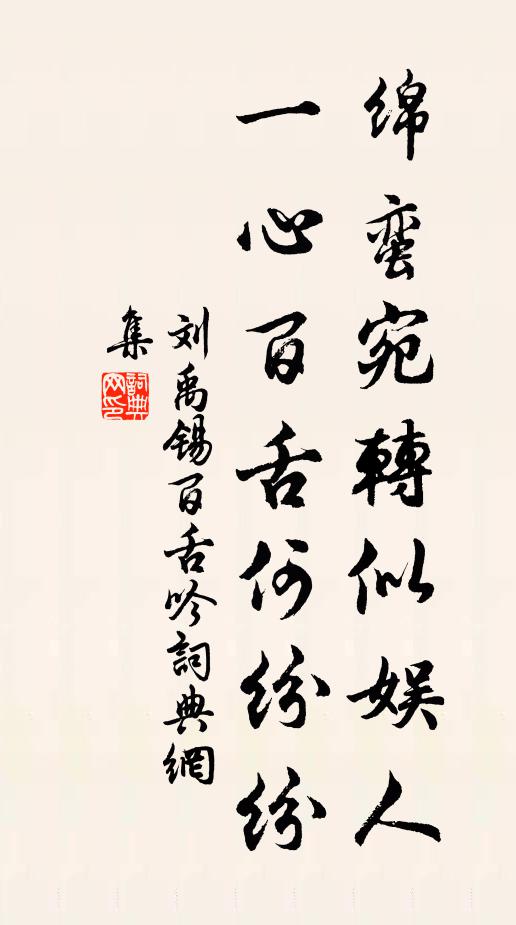 绵蛮宛轉似娱人
一心百舌何纷纷
刘禹锡百舌吟詞典網
集
詞典
网印